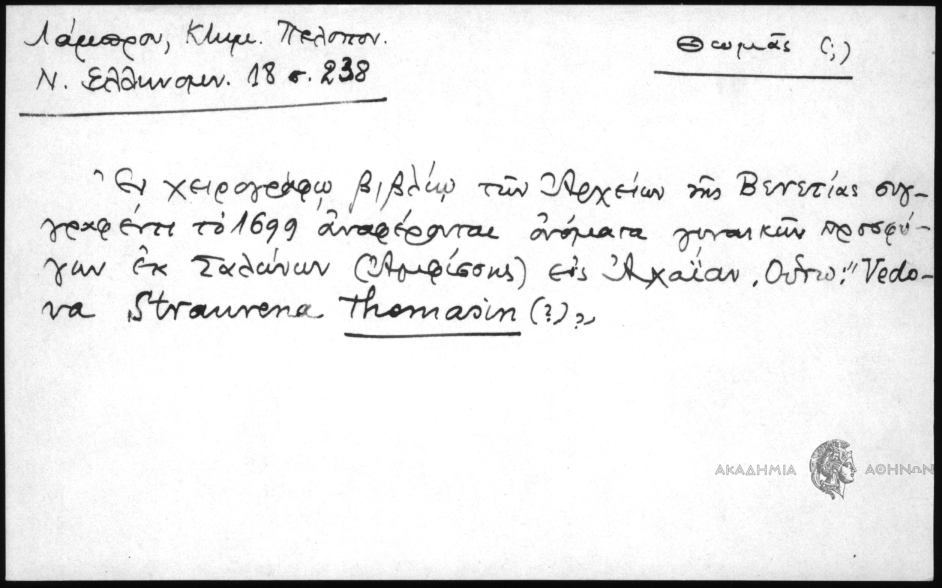 Λάμπρου, Κτημ. Πελοπον.
Ν. Ελληνομν. 18 σ. 238
Θωμᾶς (;)
Ἐν χειρογράφῳ βιβλίῳ τῶν Ἀρχείων τῆς Βενετίας συγ-
γραφέντι τὸ 1699 ἀναφέρονται ὀνόματα γυναικῶν προσφύ-
γων ἐκ Σαλώνων (Ἀμφίσσης) εἰς Ἀχαΐαν. Οὕτω: "Vedo-
va Straurena Thomasin (?) "
ΑΚΑΔΗΜΙΑ ΑΘΗΝΩΝ